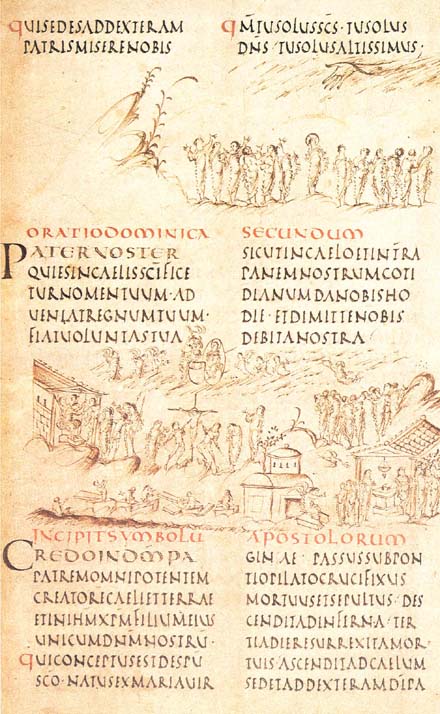 QUISEDESADDEXTERAM
PATRISMISERENOBIS
QM̄TUSOLUSSC̄S·TUSOLUS
DN̄S·TUSOLUSALTISSIMUS·
ORATIODOMINICA
PATERNOSTER
QUIESINCAELISSC̄IFICE
TURNOMENTUUM·AD
UENIATREGNUMTUUM·
FIATUOLUNTASTUA
SECUNDUM
SICUTINCAELOETINT̄RA
PANEMNOSTRUMCOTI
DIANUMDANOBISHO
DIE·ETDIMITTENOBIS
DEBITANOSTRA
INCIPITSYMBOLU
CREDOINDM̄PA
PATREMOMNIPOTENTEM
CREATORĒCAELIETTERRAE
ETINIHM̄XPM̄FILIUMEIUS
UNICUMDN̄MNOSTRU·
QUICONCEPTUSESTDESPU
SCO·NATUSEXMARIAUIR
APOSTOLORUM
GINAE·PASSUSSUBPON
TIOPILATOCRUCIFIXUS
MORTUUSETSEPULTUS·DES
CENDITADINFERNA·TER
TIADIERESURREXITAMOR
TUIS·ASCENDITADCAELUM
SEDETADDEXTERAMDĪPA